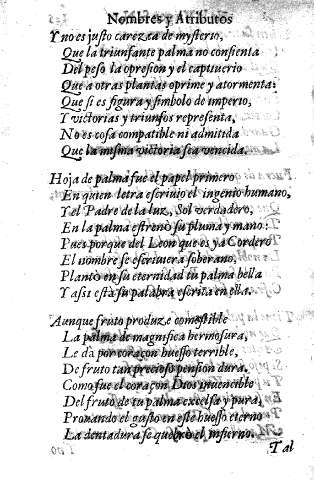 Nombres y Atributos
Y no es juſto carezca de myſterio,
Que la triunfante palma no conſienta
Del peſo la opreſion y el captiuerio
Que a otras plantas oprime y atormenta:
Que ſi es figura y ſimbolo de imperio,
Y victorias y triunfos repreſenta,
No es coſa compatible ni admitida
Que la miſma victoria ſea vencida.
Hoja de palma fue el papel primero
En quien letra eſcriuio el ingenio humano,
Y el Padre de la luz, Sol verdadero,
En la palma eſtrenò ſu pluma y mano:
Pues porque del Leon que es ya Cordero
El nombre ſe eſcriuiera ſoberano,
Plantò en ſu eternidad tu palma bella
Y aſsi eſtà ſu palabra eſcrita en ella.
Aunque fruto produze comeſtible
La palma de magnifica hermoſura,
Le dà por coraçon hueſſo terrible,
De fruto tan precioſo penſion dura.
Como fue el coraçon Dios inuencible
Del fruto de tu palma excelſa y pura,
Prouando el gaſto en eſte hueſſo eterno
La dentadura ſe quebrò el infierno.
Tal